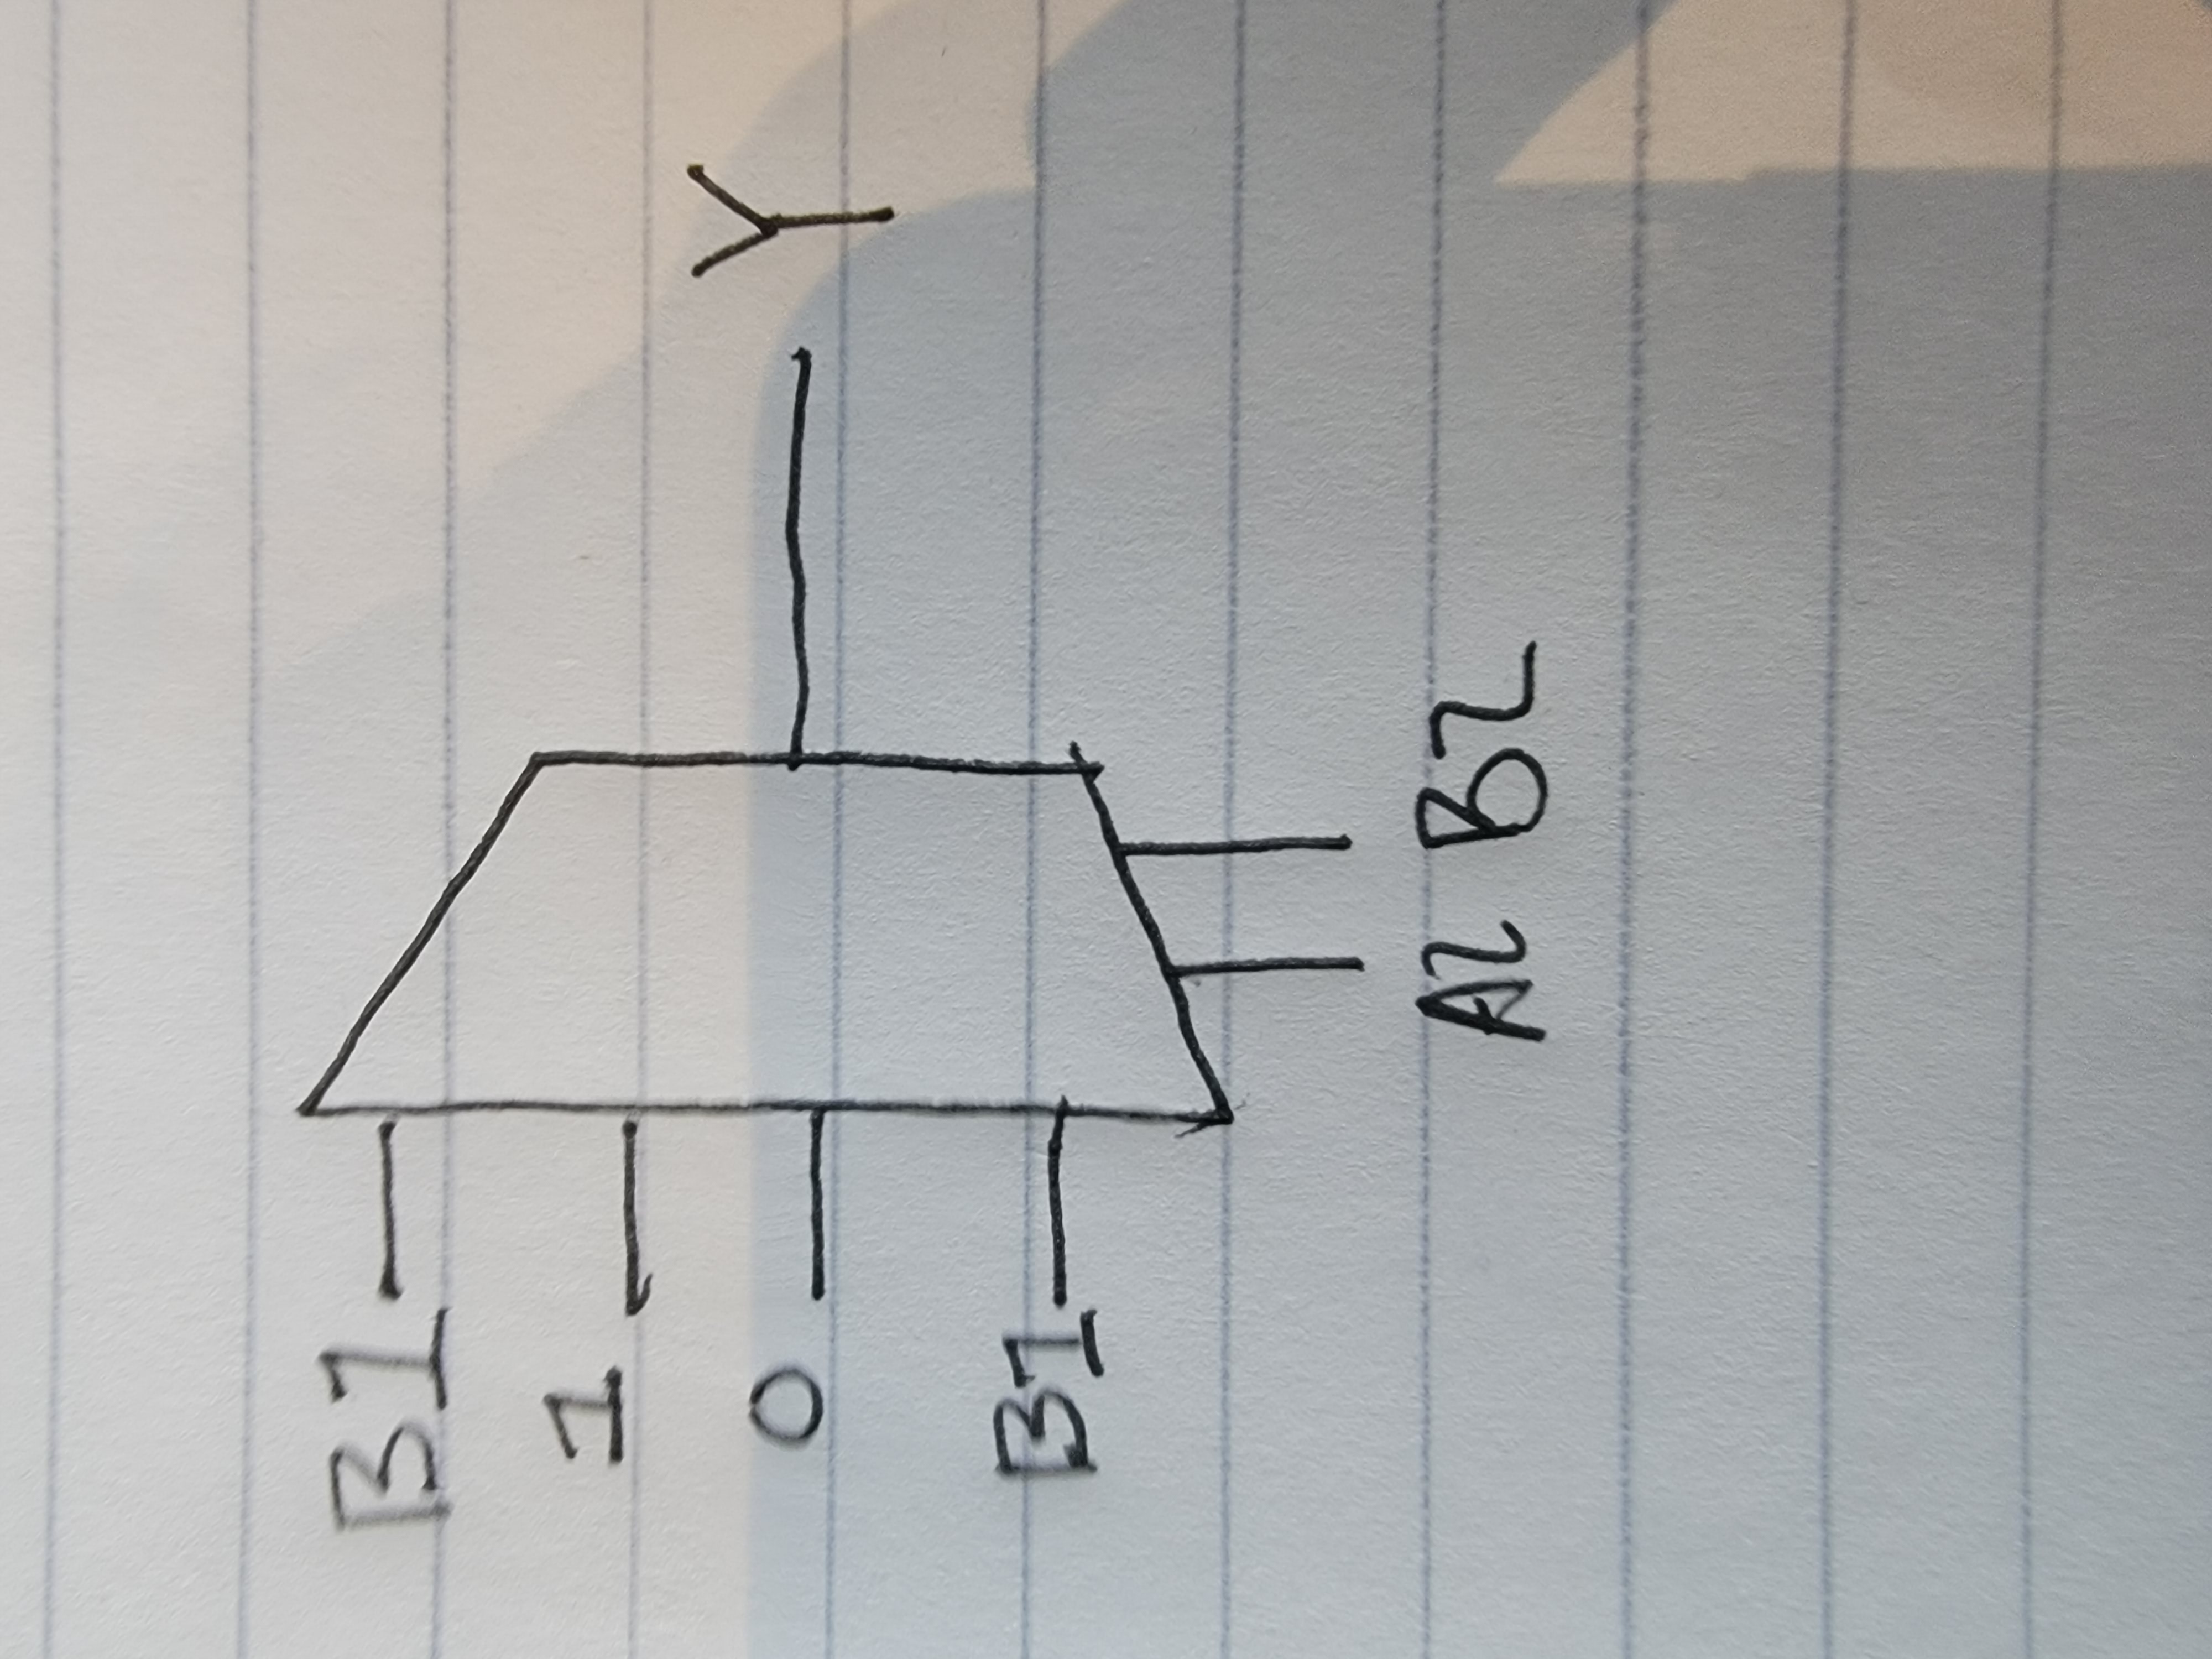 B1
1
0
Y
B1
A2 B2